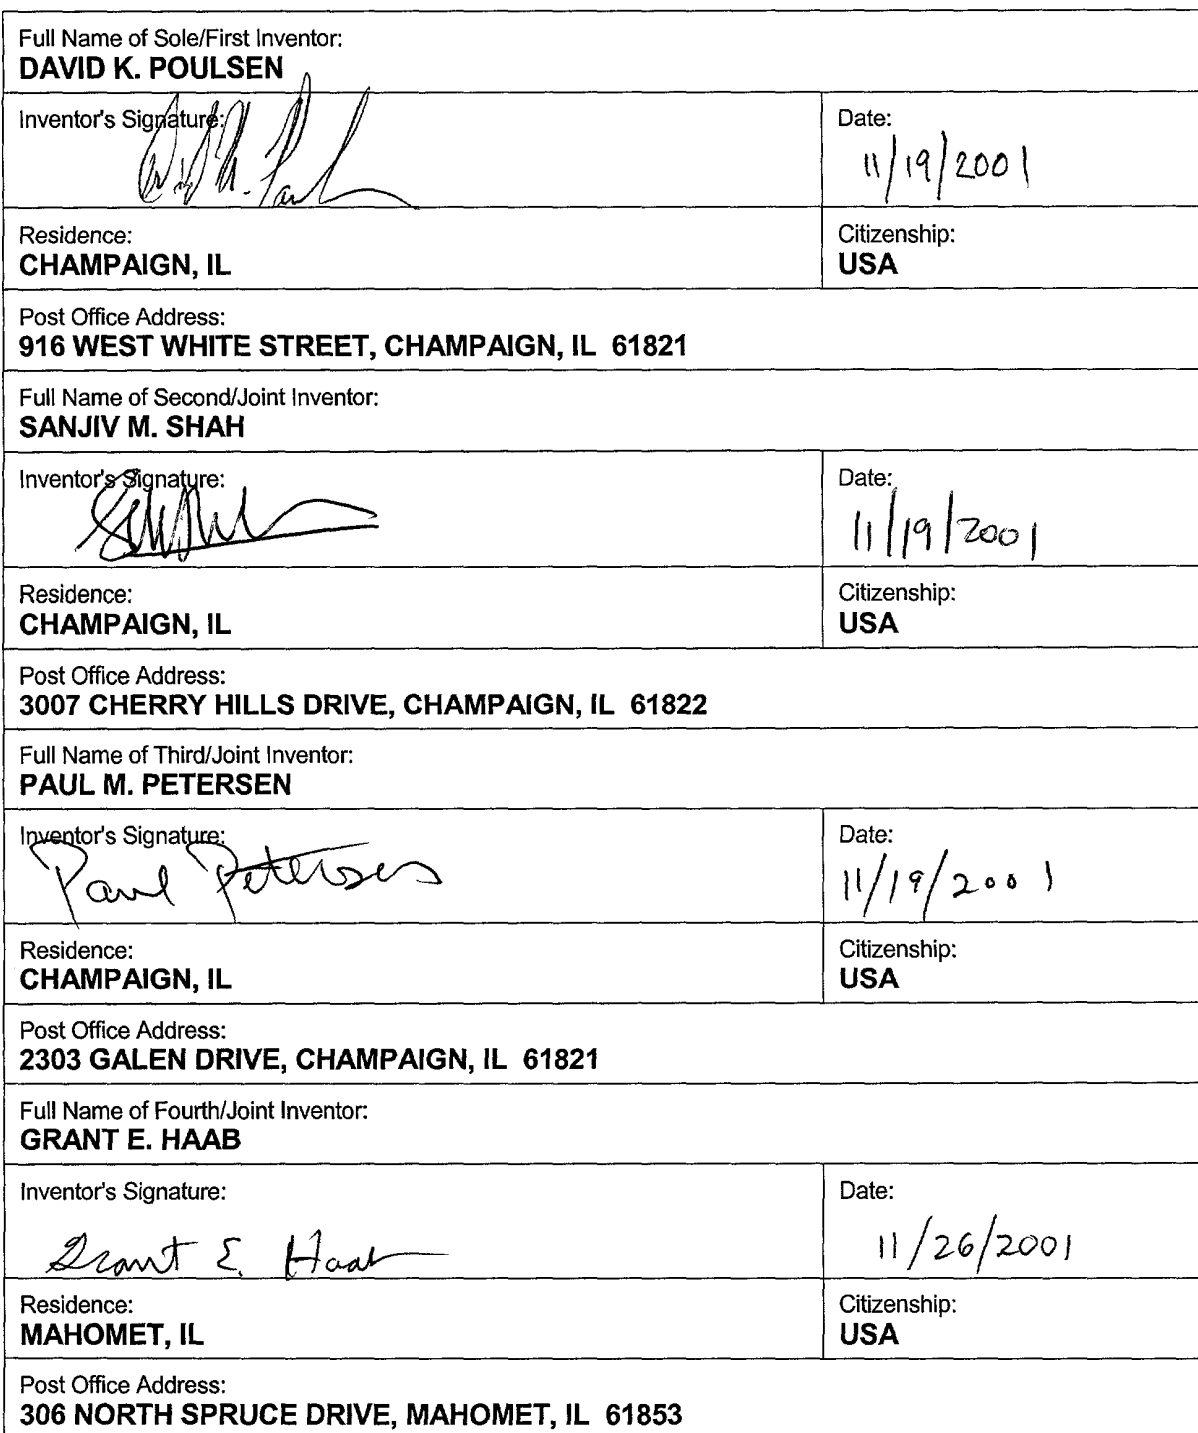 Full Name of Sole/First Inventor:
DAVID K. POULSEN
Inventor's Signature: Date:
11/19/2001
Residence: Citizenship:
CHAMPAIGN, IL USA
Post Office Address:
916 WEST WHITE STREET, CHAMPAIGN, IL 61821
Full Name of Second/Joint Inventor:
SANJIV M. SHAH
Inventor's Signature: Date:
11/19/2001
Residence: Citizenship:
CHAMPAIGN, IL USA
Post Office Address:
3007 CHERRY HILLS DRIVE, CHAMPAIGN, IL 61822
Full Name of Third/Joint Inventor:
PAUL M. PETERSEN
Inventor's Signature: Date:
Paul Petersen 11/19/2001
Residence: Citizenship:
CHAMPAIGN, IL USA
Post Office Address:
2303 GALEN DRIVE, CHAMPAIGN, IL 61821
Full Name of Fourth/Joint Inventor:
GRANT E. HAAB
Inventor's Signature: Date:
Grant E. Haab 11/26/2001
Residence: Citizenship:
MAHOMET, IL USA
Post Office Address:
306 NORTH SPRUCE DRIVE, MAHOMET, IL 61853